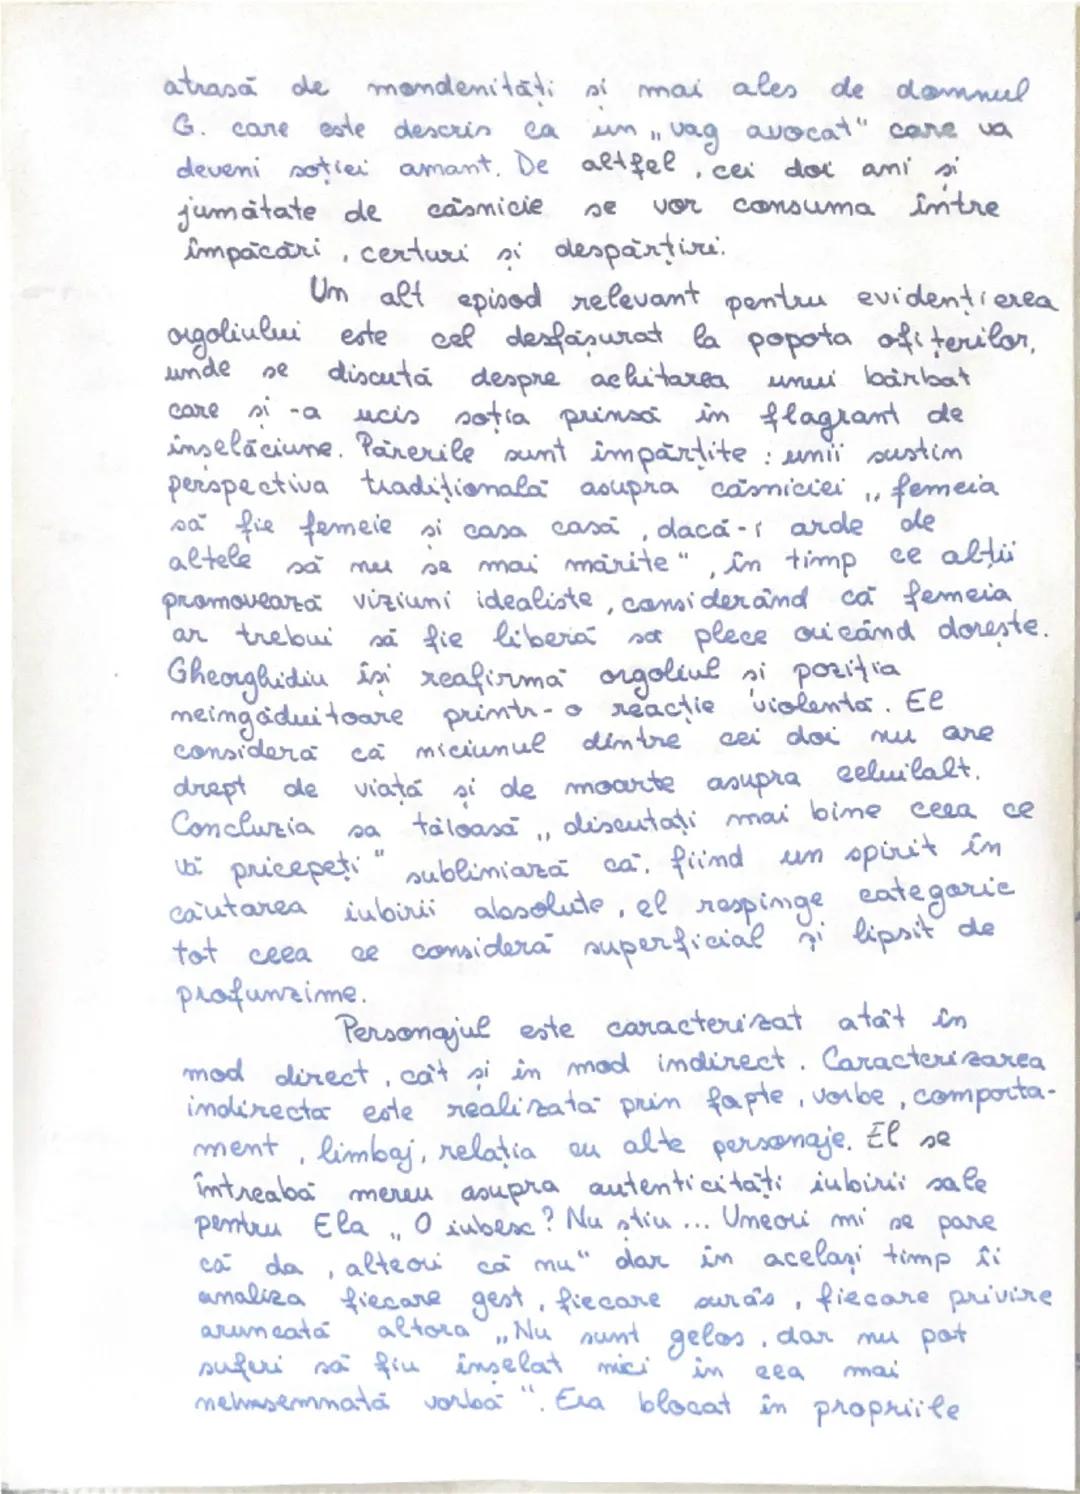 atrasă de mondenități și mai ales de domnul
G. care este descris ca un „vag avocat" care va
deveni soției amant. De altfel, cei doi ani și
jumătate de căsnicie se vor consuma între
împăcări, certuri și despărțiri.
Un alt episod relevant pentru evidențierea
orgoliului este cel desfășurat la popota ofițerilor,
unde se discută despre achitarea unui bărbat
care și-a ucis soția prinsă în flagrant de
înșelăciune. Părerile sunt împărțite: unii susțin
perspectiva tradițională asupra căsniciei „femeia
să fie femeie și casa casă, dacă-i arde de
altele să nu se mai mărite", în timp ce alții
promovează viziuni idealiste, considerând că femeia
ar trebui să fie liberă să plece oricând dorește.
Gheorghidiu își reafirmă orgoliul și poziția
neîngăduitoare printr-o reacție violentă. El
consideră că niciunul dintre cei doi nu are
drept de viață și de moarte asupra celuilalt.
Concluzia sa tăioasă „discutați mai bine ceea ce
vă pricepeți" subliniază că, fiind un spirit în
căutarea iubirii absolute, el respinge categoric
tot ceea ce consideră superficial și lipsit de
profunzime.
Personajul este caracterizat atât în
mod direct, cât și în mod indirect. Caracterizarea
indirectă este realizată prin fapte, vorbe, comporta-
ment, limbaj, relația cu alte personaje. El se
întreabă mereu asupra autenticității iubirii sale
pentru Ela „O iubesc? Nu știu... Uneori mi se pare
că da, alteori că nu" dar în același timp îi
analiza fiecare gest, fiecare surâs, fiecare privire
aruncată altora „Nu sunt gelos, dar nu pot
suferi să fiu înșelat nici în cea mai
neînsemnată vorbă". Era blocat în propriile